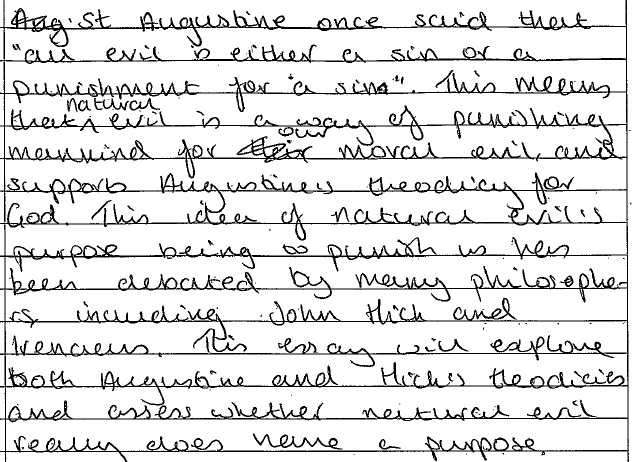 St Augustine once said that
"all evil is either a sin or a
punishment for a sin". This means
that natural evil is a way of punishing
mankind for our moral evil, and
supports Augustine's theodicy for
God. This idea of natural evil's
purpose being to punish us has
been debated by many philosophe-
rs, including John Hick and
Irenaeus. This essay will explore
both Augustine and Hick's theodicies
and assess whether natural evil
really does have a purpose.